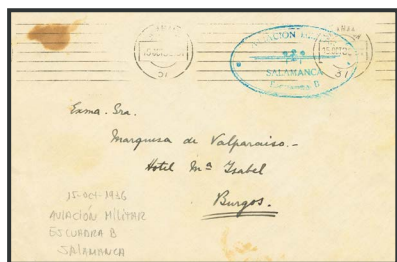 AVIACION MILITAR
SALAMANCA
Exma. Sra.
Marquesa de Valparaiso.-
Hotel Mª Isabel
Burgos.
15-OCT-1936
AVIACIÓN MILITAR
ESCUADRA B
SALAMANCA